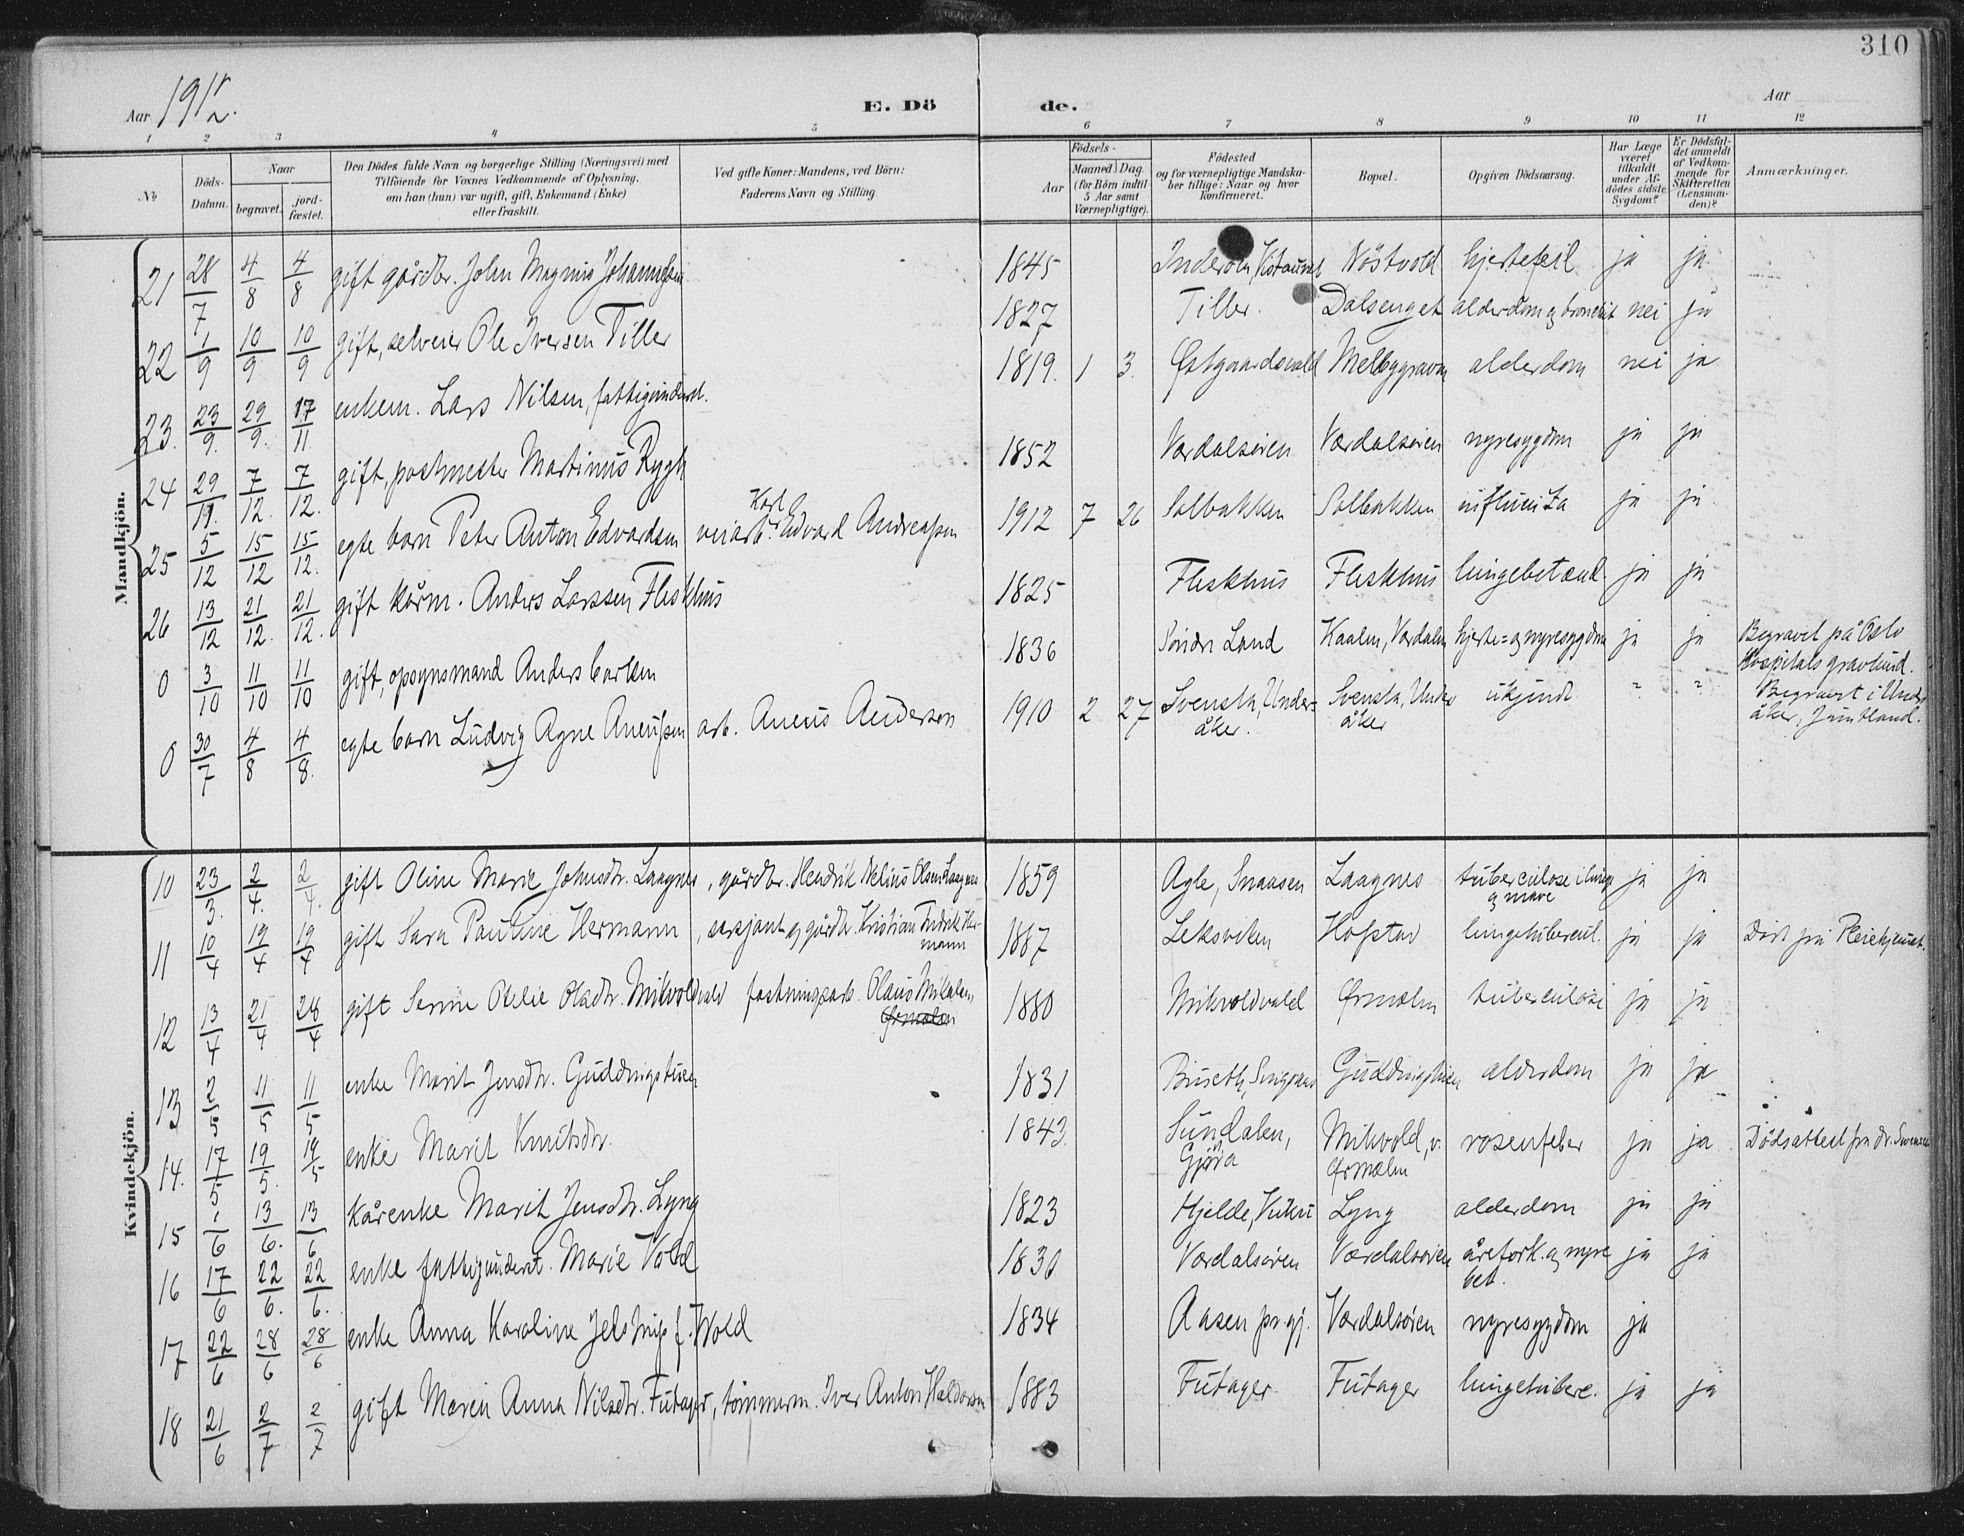 310
Aar 1912.
E. Dö
de.
Aar
1 2 3 4 5 6 7 8 9 10 11 12
No
Döds-Datum.
Naar
begravet.
jord-fæstet.
Den Dödes fulde Navn og borgerlige Stilling (Næringsvei) med
Tilföiende for Voxnes Vedkommende af Oplysning,
om han (hun) var ugift, gift, Enkemand (Enke)
eller fraskilt.
Ved gifte Koner: Mandens, ved Börn:
Faderens Navn og Stilling.
Födsels-
Aar
Maaned Dag.
(for Börn indtil
5 Aar samt
Værnepligtige).
Födested
og for værnepligtige Mandska-
ber tillige: Naar og hvor
konfirmeret.
Bopæl.
Opgiven Dödsaarsag.
Har Læge
været
tilkaldt
under Af-
dödes sidste
Sygdom?
Er Dödsfal-
det anmeldt
af Vedkom-
mende for
Skifteretten
(Lensman-
den)?
Anmærkninger.
Mandkjön.
21 28/7 4/8 4/8 gift gårdbr. John Magnus Johannessen 1845 Inderöen, Nöstvold hjertefeil ja ja
22 1/9 10/9 10/9 gift, selveier Ole Iversen Tiller 1827 Tiller. Dalsenget alderdom og bronchit nei ja
23. 23/9. 29/9. 17/11 enkem. Lars Nilsen, fattigunderst. 1819. 1 3. Østgaardsvald Melbygraven alderdom nei ja
24 29/11. 7/12. 7/12. gift, postmester Martinus Rygh 1852 Værdalsøren Værdalsøren nyresygdom ja ja
25 5/12 15/12 15/12. egte barn Peter Anton Edvardsen veiarb. Karl Edvard Andreassen 1912 7 26 Solbakken Solbakken influenza ja ja
26 13/12 21/12. 21/12. gift kårm. Anders Larssen Fleskhus 1825 Fleskhus Fleskhus lungebetænd. ja ja
0 3/10 11/10 11/10 gift, opsynsmand Anders Carlsen 1836 Søndre Land Kaalen, Værdalen hjerte= og nyresygdom ja ja Begravet på Oslo
Hospitals gravlund.
0 30/7 4/8 4/8. egte barn Ludvig Agne Aneussen arb. Aneus Anderson 1910 2 27 Svensta, Under-
åker. Svensta, Under
åker ukjendt " " Begravet i Under
åker, Jemtland.
Kvindekjön.
10 23/3. 2/4. 2/4. gift Oline Marie Johnsdtr. Laagnes, gårdbr. Hendrik Nelius Olsen Laagnes 1859 Agle, Snaasen Laagnes tuberculose i lunge
og mave ja ja
11 10/4 19/4 19/4 gift Sara Pauline Hermann, sersjant og gårdbr. Kristian Fredrik Her-
mann 1887 Leksviken Hofstad lungetubercul. ja ja Död på Pleiehjemmet.
12 13/4 21/4 28/4 gift Serine Otelie Olsdtr. Mikvoldvald fæstningsarb. Olaus Mikalsen,
Ørmelen 1880 Mikvoldvald Ørmelen tuberculose ja ja
13 2/5 11/5 11/5 enke Marit Jensdtr. Guddingstuen 1831 Buseth, Singsaas Guddingstuen alderdom ja ja
14. 17/5 19/5. 19/5 enke Marit Knutsdtr. 1843. Sundalen,
Gjøra Mikvold, v.
Ørmelen rosenfeber ja ja Dödsattest fra dr.
15 1/6 13/6. 13/6 kårenke Marit Jensdtr. Lyng 1823 Hjelde, Vuku Lyng alderdom ja ja
16 17/6 22/6. 22/6. enke fattigunderst. Marie Vold 1831 Værdalsøren Værdalsøren årefork. og nyre
bet. ja ja
17 22/6 28/6 28/6 enke Anna Karoline Jelstrup f. Wold 1834 Aasen pr.gj. Værdalsøren nyresygdom ja
18 21/6 2/7 2/7 gift Maren Anna Nilsdtr. Futager, tömmerm. Iver Anton Haldorsen 1883 Futager. Futager lungetuberc. ja ja